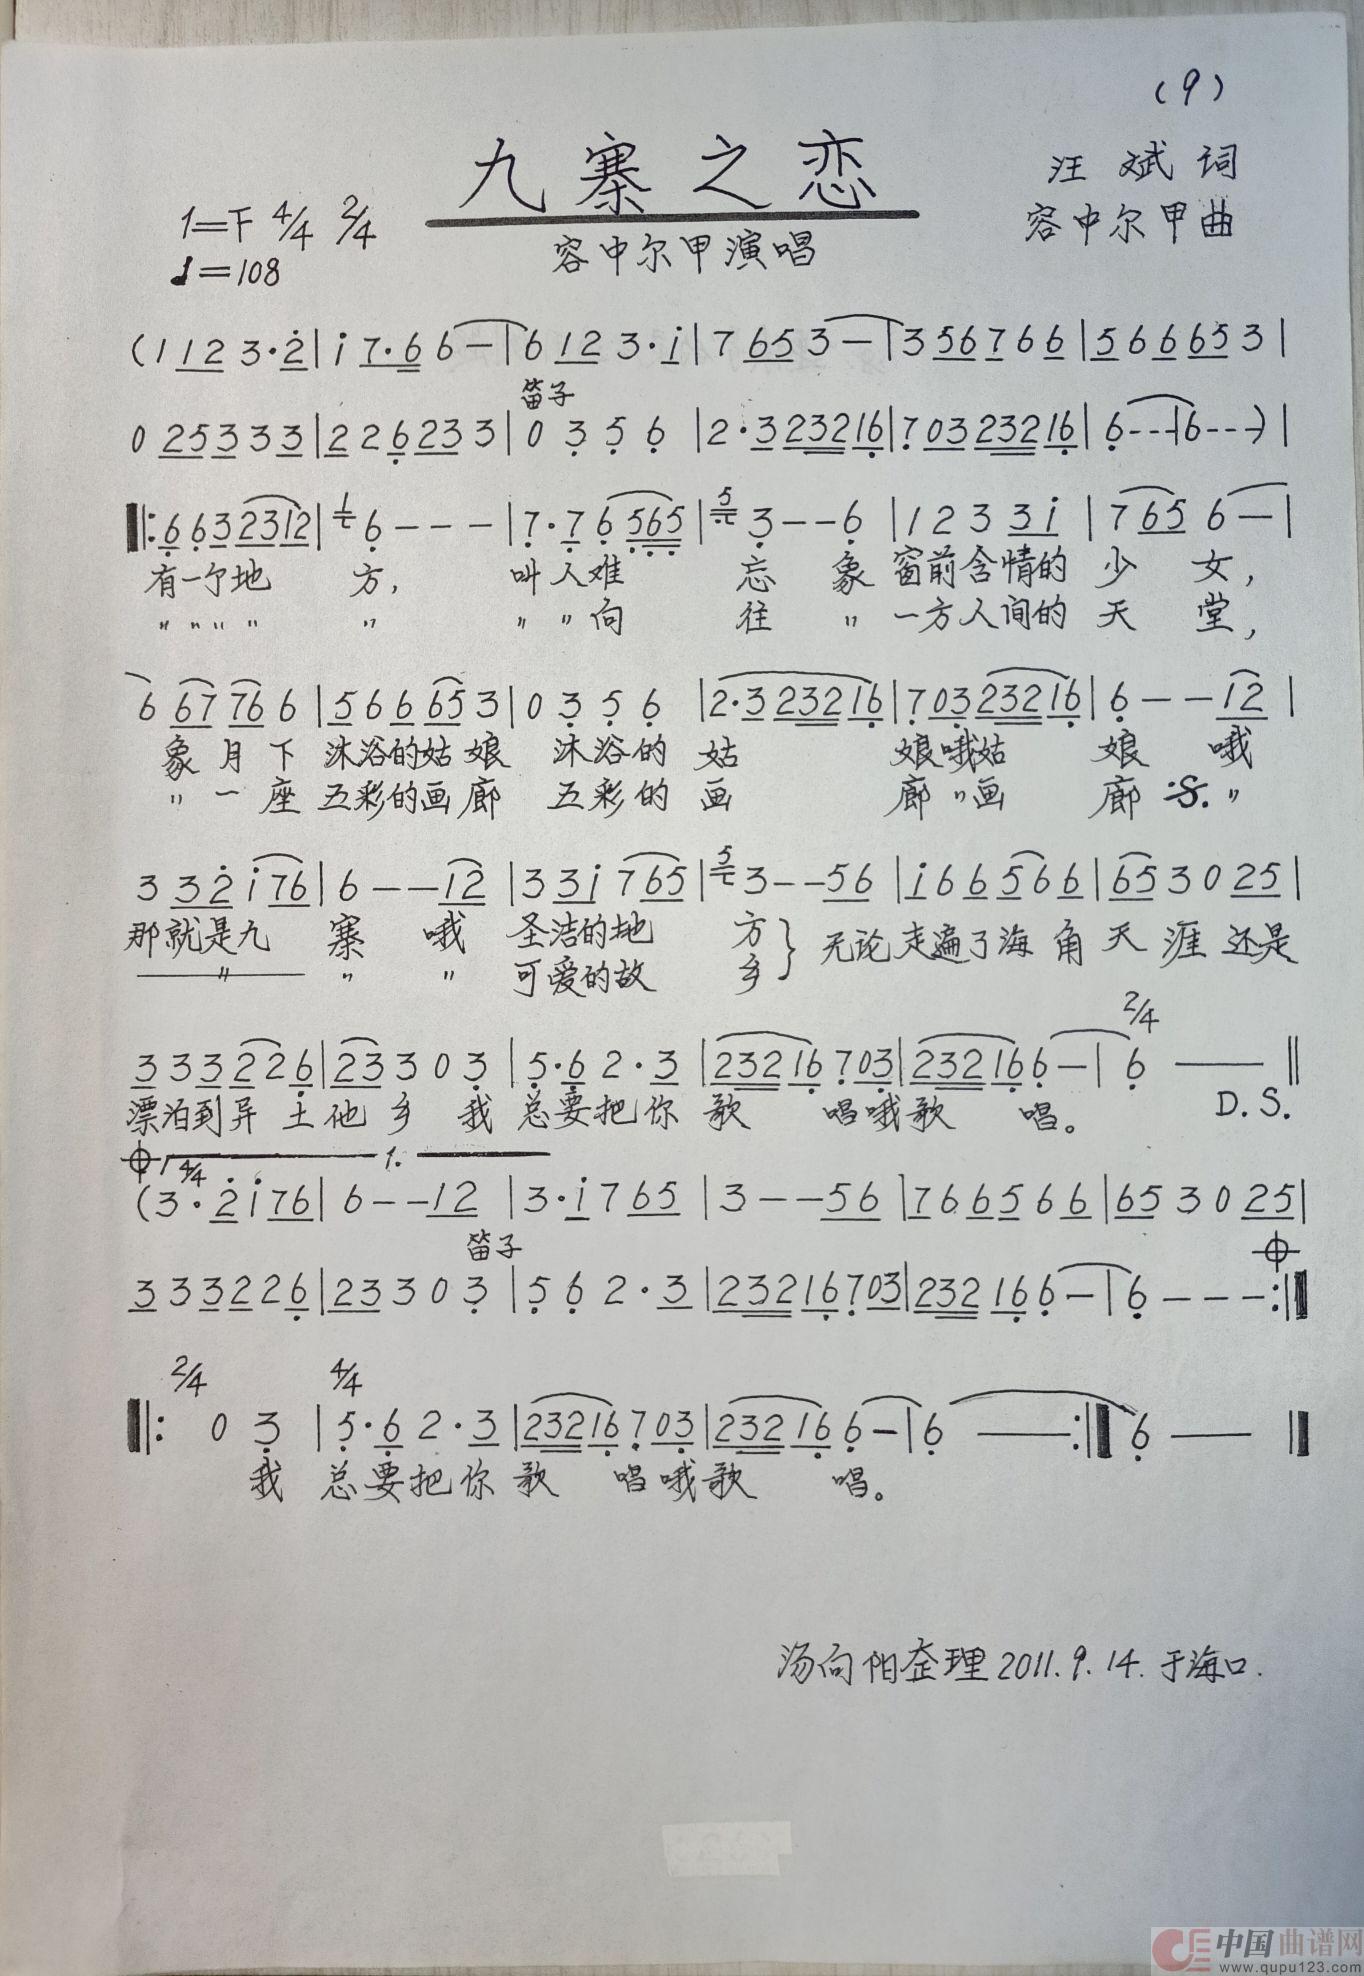 (9)
九寨之恋
汪斌词
1=F 4/4 2/4
容中尔甲曲
容中尔甲演唱
♩=108
(1 1 2 3·2̇|i 7·6 6—|6 1 2 3·i|7 6 5 3—|3 5 6 7 6 6|5 6 6 6 5 3|
笛子
0 2 5 3 3 3|2 2 6 2 3 3|0 3 5 6|2·3 2 3 2 1 6|7 0 3 2 3 2 1 6|6---|6---)|
‖:6 6 3 2 3 1 2|1 6---|7·7 6 5 6 5|5 3--6|1 2 3 3 i|7 6 5 6—|
有一个地 方, 叫人难 忘 象 窗前含情的 少 女,
〃〃〃〃 〃 〃〃向 往 〃 一方人间的 天 堂,
6 6 7 7 6 6|5 6 6 6 5 3|0 3 5 6|2·3 2 3 2 1 6|7 0 3 2 3 2 1 6|6--1 2|
象月下 沐浴的姑娘 沐浴的 姑 娘哦姑 娘 哦
〃一座 五彩的画廊 五彩的 画 廊〃画 廊 𝄋 〃
3 3 2̇ i 7 6|6--1 2|3 3 i 7 6 5|5 3--5 6|i 6 6 5 6 6|6 5 3 0 2 5|
那就是九 寨 哦 圣洁的地 方} 无论走遍了海角天涯还是
〃 〃 〃 可爱的故 乡
2/4
3 3 3 2 2 6|2 3 3 0 3|5·6 2·3|2 3 2 1 6 7 0 3|2 3 2 1 6 6—|6 ——‖
漂泊到异土他乡 我 总要把你 歌 唱哦歌 唱。 D.S.
𝄌 1.
4/4
(3·2̇ i 7 6|6--1 2|3·i 7 6 5|3--5 6|7 6 6 5 6 6|6 5 3 0 2 5|
笛子 𝄌
3 3 3 2 2 6|2 3 3 0 3|5 6 2·3|2 3 2 1 6 7 0 3|2 3 2 1 6 6—|6---:‖
2/4 4/4
‖: 0 3|5·6 2·3|2 3 2 1 6 7 0 3|2 3 2 1 6 6—|6 ——:‖6 —— ‖
我 总要把你 歌 唱哦歌 唱。
汤向阳整理2011.9.14.于海口.
中国曲谱网
www.qupu123.com